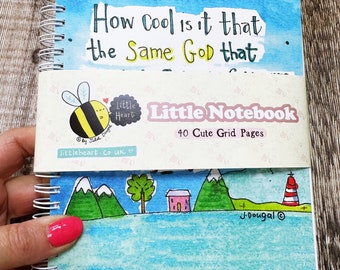 How Cool is it that
the Same God that
Little
Heart
Little Notebook
40 Cute Grid Pages
littleheart.co.uk
J.Dougal ©